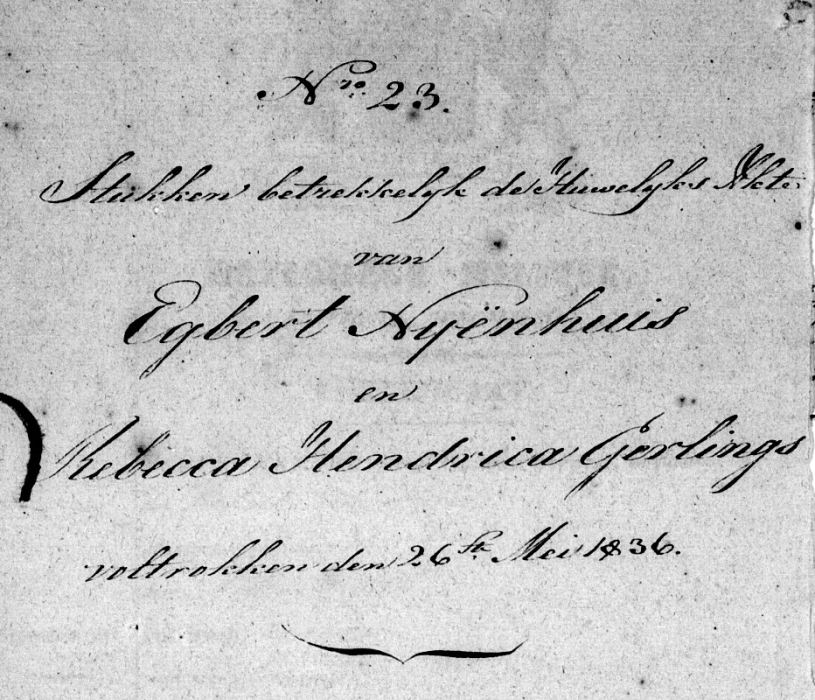 Nro. 23.
Stukken betrekkelyk de Huwelyks Akte
van
Egbert Nyënhuis
en
Rebecca Hendrica Gerlings
voltrokken den 26ste Mei 1836.